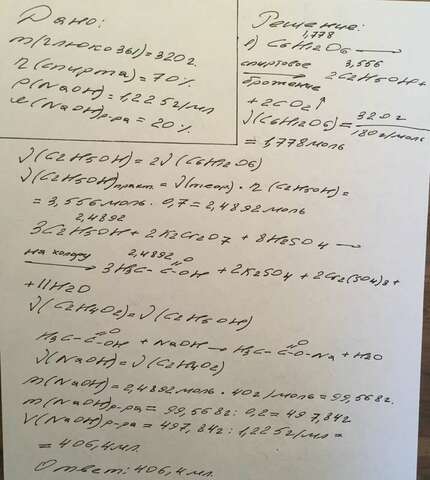 Дано:
m(глюкозы)=320г.
η(спирта)=70%
ρ(NaOH)=1,225г/мл
ω(NaOH)р-ра=20%
Решение:
1,778
1) C6H12O6 →
спиртовое 3,556
брожение 2C2H5OH+
+2CO2↑
ν(C6H12O6)=320г/180г/моль
=1,778моль
ν(C2H5OH)=2ν(C6H12O6)
ν(C2H5OH)практ=ν(теор)·η(C2H5OH)=
=3,556моль·0,7=2,4892моль
2,4892
3C2H5OH+2K2Cr2O7+8H2SO4 →
на холоду 2,4892 O
→ 3H3C-C-OH+2K2SO4+2Cr2(SO4)3+
+11H2O
ν(C2H4O2)=ν(C2H5OH)
H3C-C(=O)-OH+NaOH→H3C-C(=O)-O-Na+H2O
ν(NaOH)=ν(C2H4O2)
m(NaOH)=2,4892моль·40г/моль=99,568г.
m(NaOH)р-ра=99,568г:0,2=497,84г
V(NaOH)р-ра=497,84г:1,225г/мл=
=406,4мл.
Ответ:406,4мл.